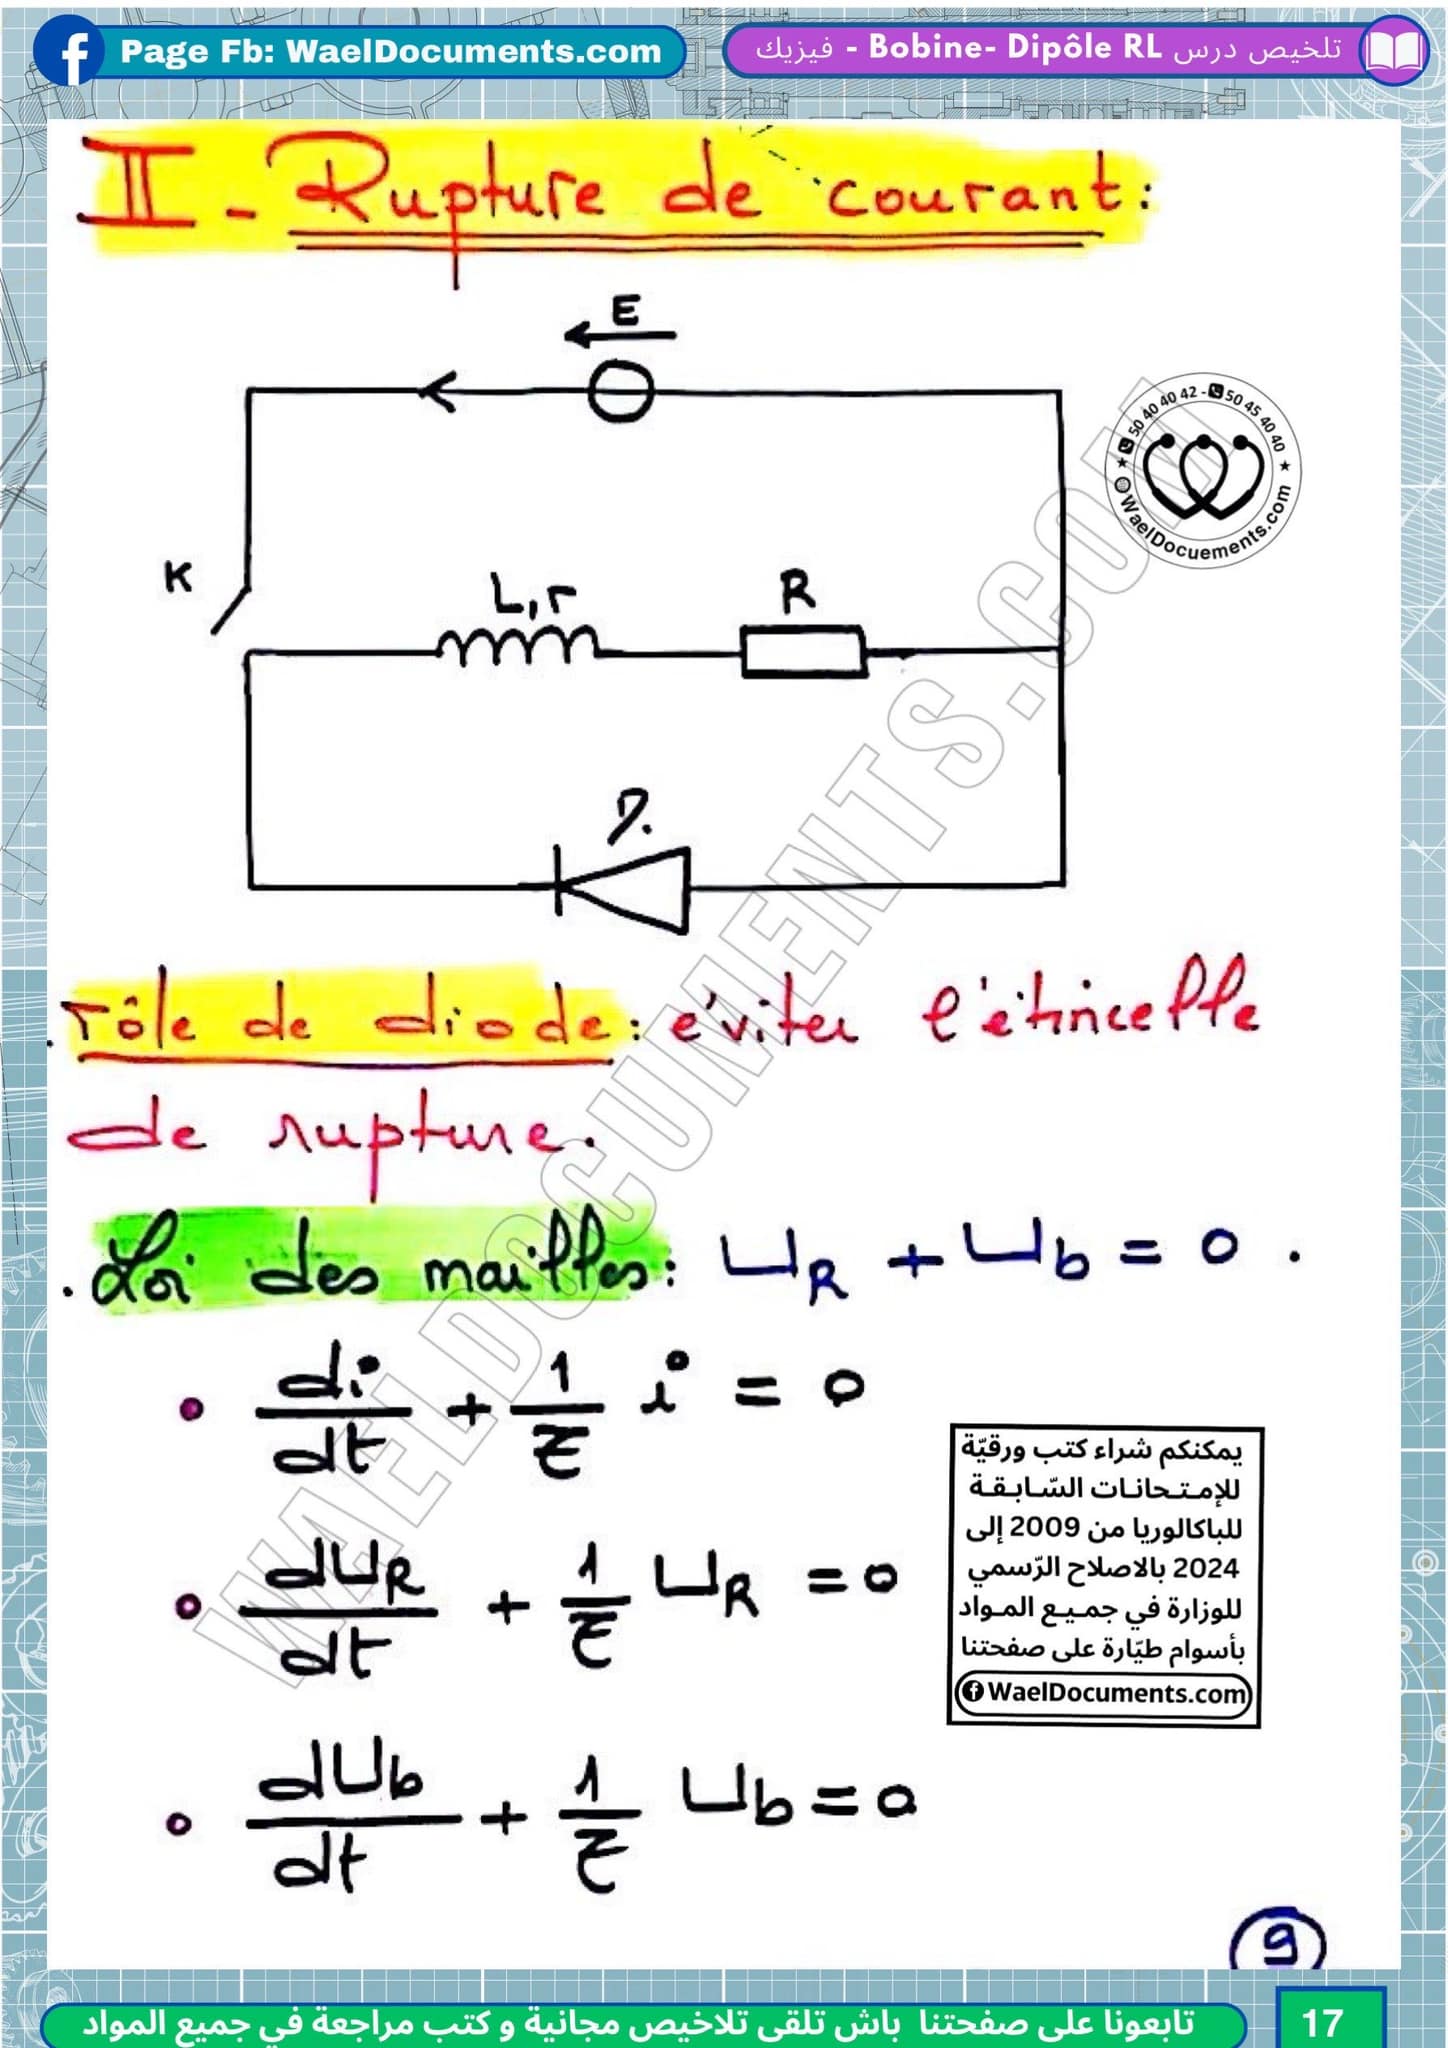 Page Fb: WaelDocuments.com
تلخيص درس Bobine- Dipôle RL - فيزيك
II - Rupture de courant:
E
50 40 40 42 - 50 45 40 40
WaelDocuements.com
K
L,r
R
D.
WAELDOCUMENTS.COM
. rôle de diode: éviter l'étincelle
de rupture.
. Loi des mailles: UR + Ub = 0 .
di/dt + 1/τ i = 0
dUR/dt + 1/τ UR = 0
dUb/dt + 1/τ Ub = 0
يمكنكم شراء كتب ورقيّة
للإمتحانات السّابقة
للباكالوريا من 2009 إلى
2024 بالاصلاح الرّسمي
للوزارة في جميع المواد
بأسوام طيّارة على صفحتنا
WaelDocuments.com
9
تابعونا على صفحتنا باش تلقى تلاخيص مجانية و كتب مراجعة في جميع المواد
17